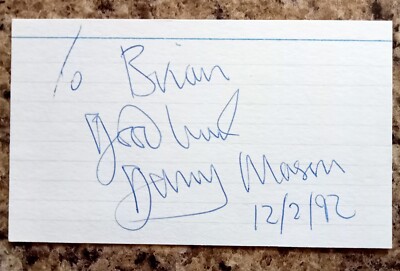 To Brian
Good luck
Danny Mason
12/2/92